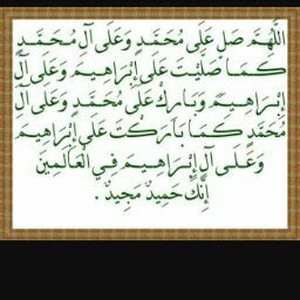 اللَّهُمَّ صَلِّ عَلَى مُحَمَّدٍ وَعَلَى آلِ مُحَمَّدٍ
كَمَا صَلَّيْتَ عَلَى إِبْرَاهِيمَ وَعَلَى آلِ
إِبْرَاهِيمَ وَبَارِكْ عَلَى مُحَمَّدٍ وَعَلَى آلِ
مُحَمَّدٍ كَمَا بَارَكْتَ عَلَى إِبْرَاهِيمَ
وَعَلَى آلِ إِبْرَاهِيمَ فِي العَالَمِينَ
إِنَّكَ حَمِيدٌ مَجِيدٌ .